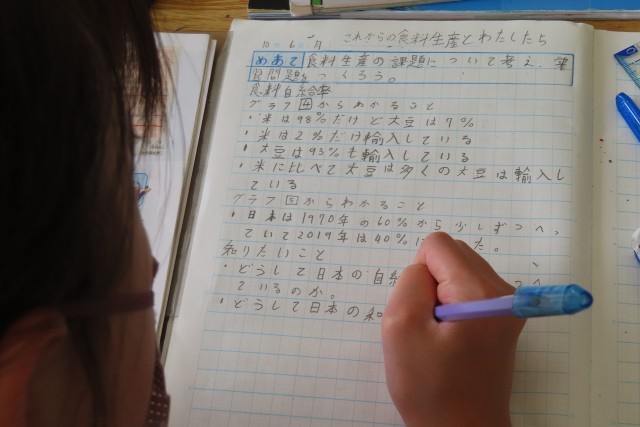 10 6 月 これからの食料生産とわたしたち
めあて 食料生産の課題について考え、学
習問題をつくろう。
食料自給率
グラフ4からわかること
・米は98%だけど大豆は7%
・米は2%だけ輸入している
・大豆は93%も輸入している
・米に比べて大豆は多くの大豆は輸入し
ている
グラフ5からわかること
・日本は1970年の60%から少しずつへっ
ていて2019年は40%に た。
知りたいこと
・どうして日本の自給 つへ
ているのか。
・どうして日本の